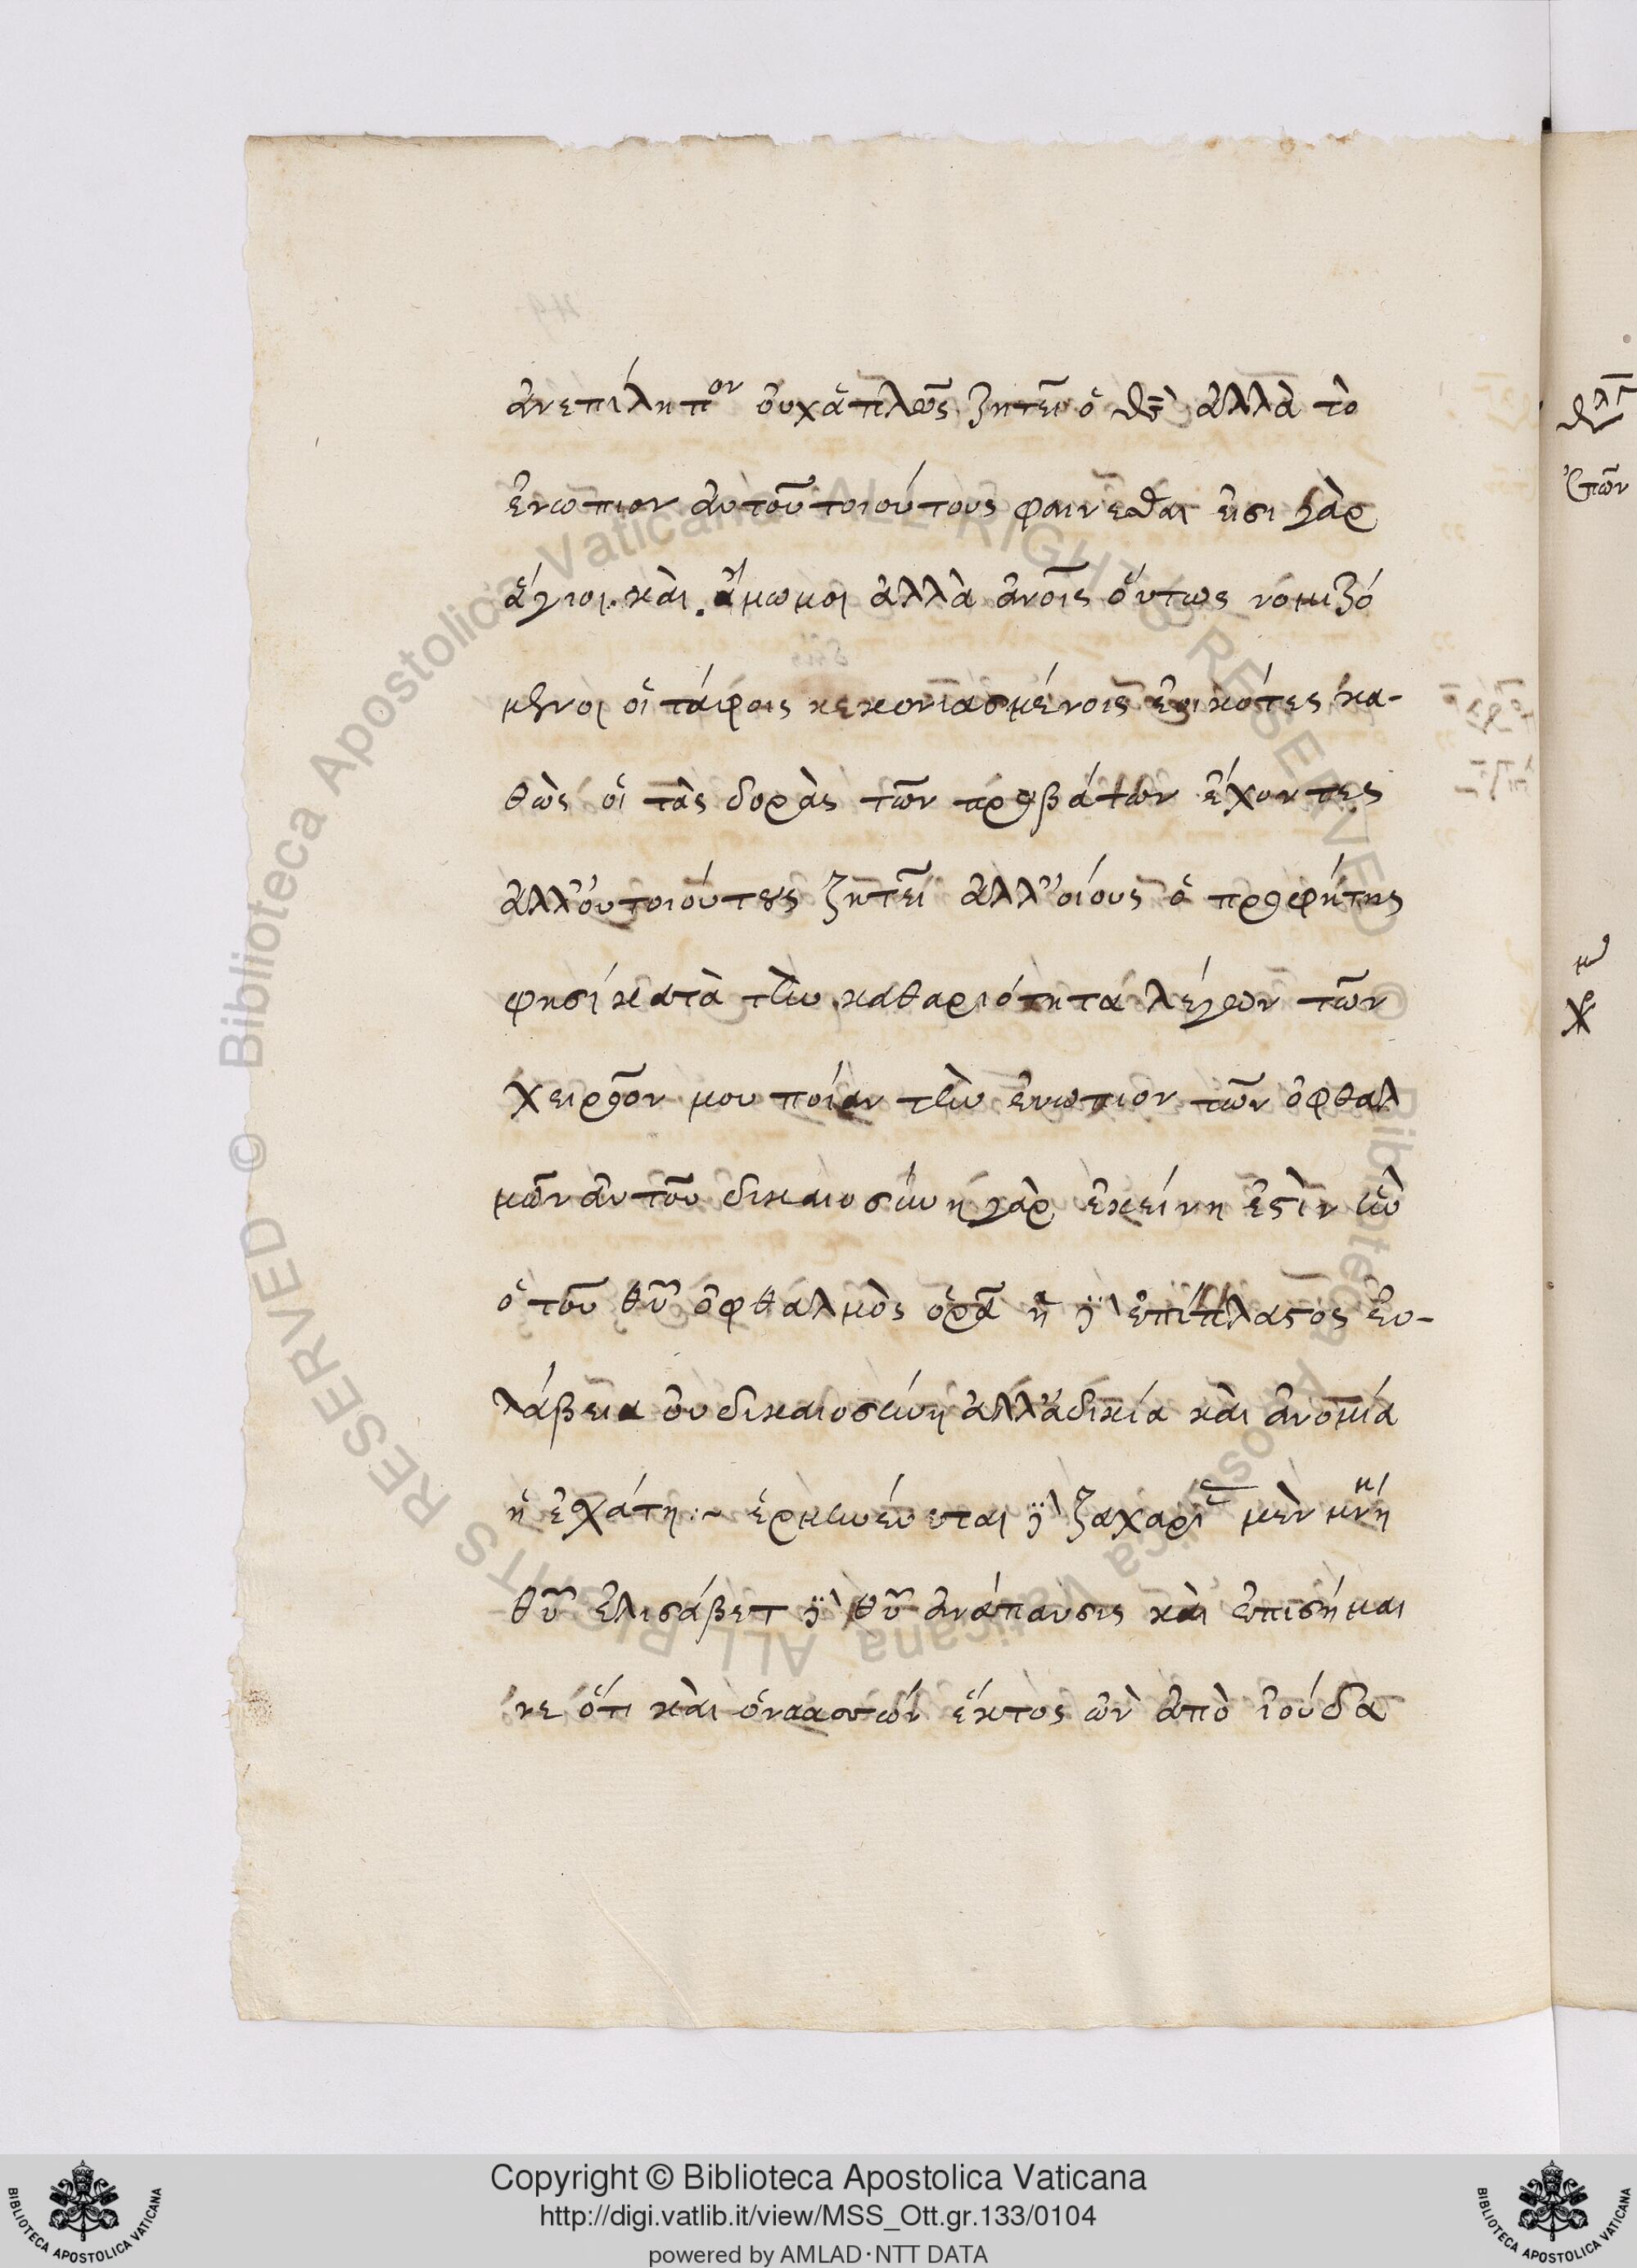 ἀνεπίληπτον οὐχ ἁπλῶς ζητεῖ ὁ θς ἀλλὰ τὸ
ἐνώπιον αὐτοῦ τοιούτους φαίνεσθαι εἰσι γὰρ
ἅγιοι καὶ ἄμωμοι ἀλλὰ ἀνοις οὕτως νομιζό
μενοι οἱ τάφοις κεκονιασμένοις ἐοικότες κα-
θὼς οἱ τὰς δορὰς τῶν προβάτων ἔχοντες
ἀλλ' οὐ τοιούτους ζητεῖ ἀλλ' οἵους ὁ προφήτης
φησί κατὰ τὴν καθαριότητα λέγων τῶν
χειρῶν μου ποίαν τὴν ἐνώπιον τῶν ὀφθαλ
μῶν αὐτοῦ δικαιοσύνη γὰρ ἐκείνη ἐστὶν ἣν
ὁ τοῦ θῦ ὀφθαλμὸς ὁρᾷ ἡ δὲ ἐπίπλαστος εὐ-
λάβεια οὐ δικαιοσύνη ἀλλ' ἀδικία καὶ ἀνομία
ἡ ἐσχάτη :~ ἑρμηνεύεται δὲ ζαχαρίας μὲν μνήμη
θῦ ἐλισάβετ δὲ θῦ ἀνάπαυσις καὶ ἐπισήμαι
νε ὅτι καὶ ὁ ναασσὼν ἕκτος ὢν ἀπὸ ἰούδα
Copyright © Biblioteca Apostolica Vaticana
http://digi.vatlib.it/view/MSS_Ott.gr.133/0104
powered by AMLAD·NTT DATA
BIBLIOTECA APOSTOLICA VATICANA
BIBLIOTECA APOSTOLICA VATICANA
© Biblioteca Apostolica Vaticana ALL RIGHTS RESERVED © Biblioteca Apostolica Vaticana ALL RIGHTS RESERVED